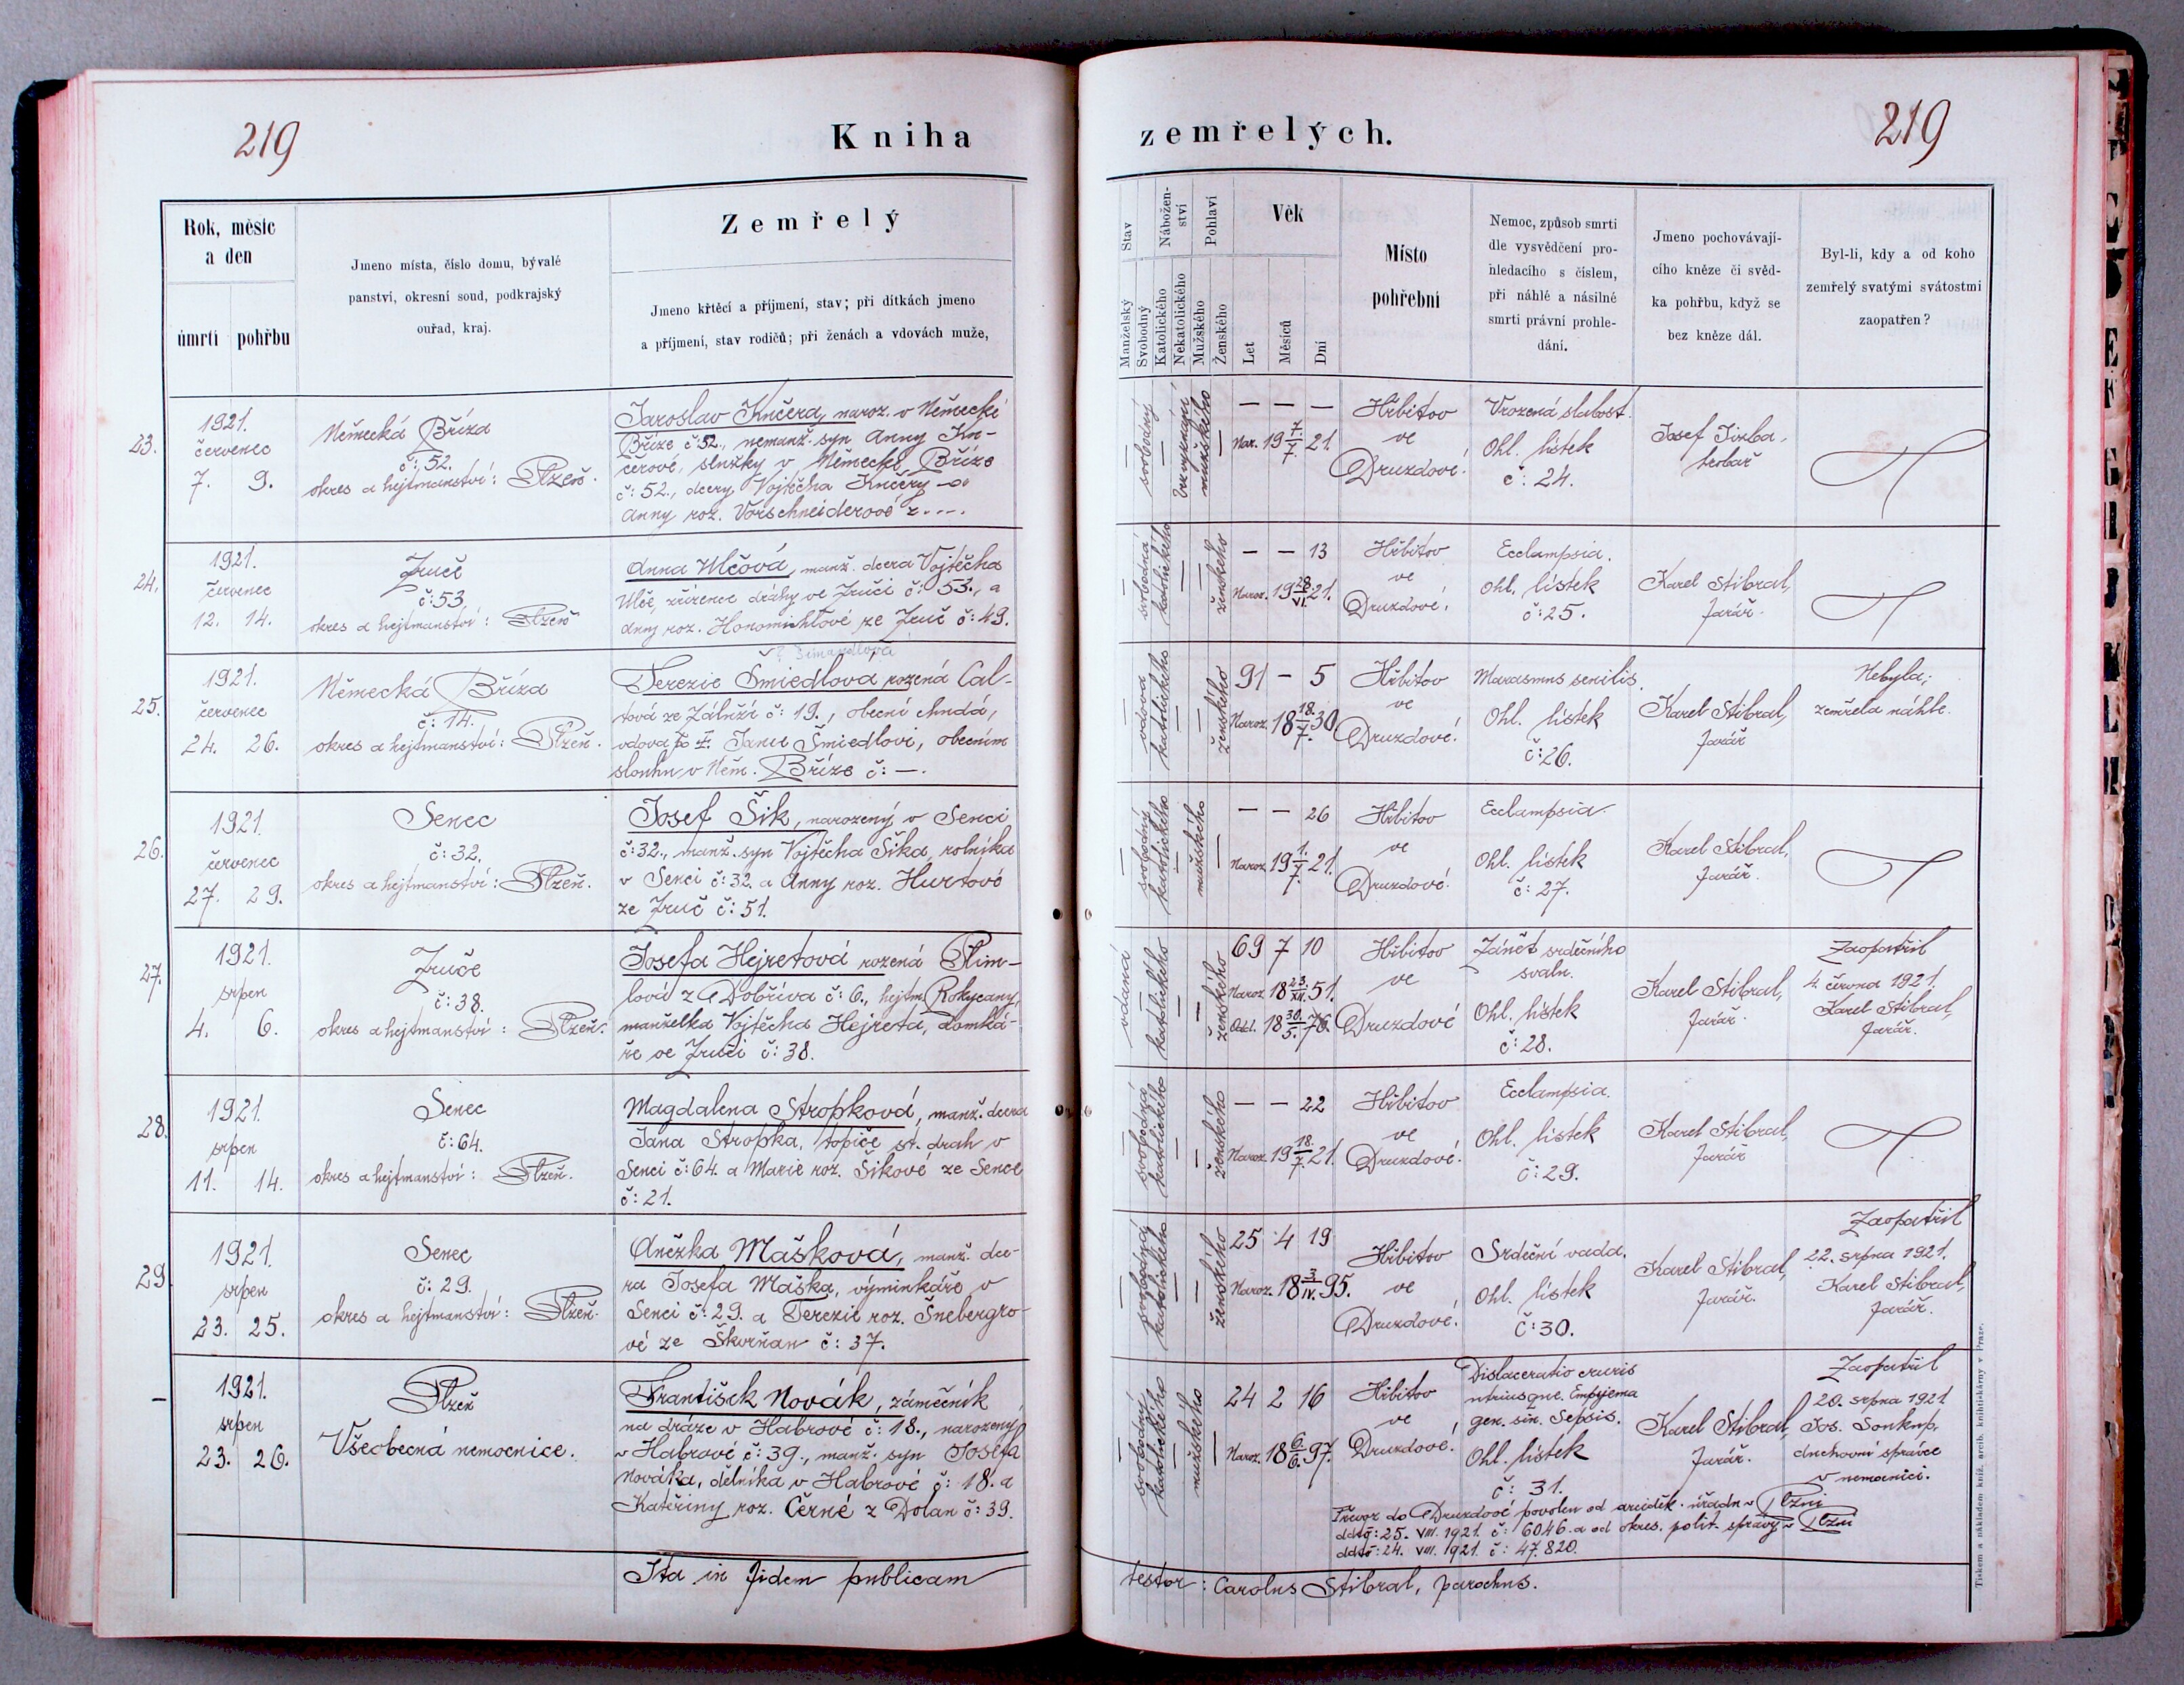 219
Kniha
zemřelých.
219
Rok, měsíc
a den
úmrtí pohřbu
Jmeno místa, číslo domu, bývalé
panství, okresní soud, podkrajský
ouřad, kraj.
Zemřelý
Jmeno křtěcí a příjmení, stav; při dítkách jmeno
a příjmení, stav rodičů; při ženách a vdovách muže,
Stav
Manželský
Svobodný
Nábožen-
ství
Katolického
Nekatolického
Pohlaví
Mužského
Ženského
Věk
Let
Měsíců
Dní
Místo
pohřební
Nemoc, způsob smrti
dle vysvědčení pro-
hledacího s číslem,
při náhlé a násilné
smrti právní prohle-
dání.
Jmeno pochovávají-
cího kněze či svěd-
ka pohřbu, když se
bez kněze dál.
Byl-li, kdy a od koho
zemřelý svatými svátostmi
zaopatřen?
23.
1921.
červenec
7. 9.
Německá Bříza
č: 52.
okres a hejtmanství: Plzeň.
Jaroslav Kučera, naroz. v Německé
Bříze č: 52., nemanž. syn Anny Ku-
čerové, služky v Německé Bříze
č: 52., dcery Vojtěcha Kučery
Anny roz. Vorschneiderové z ...
svobodný
bez vyznání
mužského
— — —
Nar. 19 7./7. 21.
Hřbitov
ve
Druzdové!
Vrozená slabost.
Ohl. lístek
č: 24.
Josef Jizba,
hrobař
24.
1921.
červenec
12. 14.
Zruč
č: 53
okres a hejtmanství: Plzeň
Anna Ulčová, manž. dcera Vojtěcha
Ulče, zřízence dráhy ve Zruči č: 53., a
Anny roz. Honomichlové ze Zruč č: 49.
svobodná
katolického
ženského
— — 13
Naroz. 19 28./VI. 21.
Hřbitov
ve
Druzdové!
Ecclampsia.
Ohl. lístek
č: 25.
Karel Stibral,
farář.
25.
1921.
červenec
24. 26.
Německá Bříza
č: 14.
okres a hejtmanství: Plzeň.
? Šimandlova
Terezie Šmiedlova rozená Cal-
tová ze Záluži č: 19., obecní chudá,
vdova po † Janu Šmiedlovi, obecním
slouhu v Něm. Bříze č: —.
vdova
katolického
ženského
91 — 5
Naroz. 18 18./7. 30
Hřbitov
ve
Druzdové!
Marasmus senilis.
Ohl. lístek
č: 26.
Karel Stibral,
farář
Nebyla;
zemřela náhle.
26.
1921.
červenec
27. 29.
Senec
č: 32.
okres a hejtmanství: Plzeň.
Josef Šik, narozený v Senci
č: 32., manž. syn Vojtěcha Šika, rolníka
v Senci č: 32. a Anny roz. Hurtové
ze Zruč č: 51.
svobodný
katolického
mužského
— — 26
Naroz. 19 1./7. 21.
Hřbitov
ve
Druzdové!
Ecclampsia.
Ohl. lístek
č: 27.
Karel Stibral,
farář.
27.
1921.
srpen
4. 6.
Zruče
č: 38.
okres a hejtmanství: Plzeň.
Josefa Hejretová rozená Plim-
lová z Dobříva č: 6., hejtm. Rokycany,
manželka Vojtěcha Hejreta, domká-
ře ve Zruči č: 38.
vdaná
katolického
ženského
69 7 10
Naroz. 18 23./XII. 51.
Odd. 18 30./5. 76.
Hřbitov
ve
Druzdové
Zánět srdečního
svalu.
Ohl. lístek
č: 28.
Karel Stibral,
farář.
Zaopatřil
4. června 1921.
Karel Stibral,
farář.
28.
1921.
srpen
11. 14.
Senec
č: 64.
okres a hejtmanství: Plzeň.
Magdalena Stropková, manž. dcera
Jana Stropka, topiče st. drah v
Senci č: 64. a Marie roz. Šikové ze Sence
č: 21.
svobodná
katolického
ženského
— — 22
Naroz. 19 18./7. 21.
Hřbitov
ve
Druzdové!
Ecclampsia.
Ohl. lístek
č: 29.
Karel Stibral,
farář
29
1921.
srpen
23. 25.
Senec
č: 29.
okres a hejtmanství: Plzeň.
Anežka Mašková, manž. dce-
ra Josefa Maška, výminkáře v
Senci č: 29. a Terezie roz. Šnebergro-
vé ze Škvrňan č: 37.
svobodná
katolického
ženského
25 4 19
Naroz. 18 3/IV. 95.
Hřbitov
ve
Druzdové!
Srdeční vada.
Ohl. lístek
č: 30.
Karel Stibral,
farář.
Zaopatřil
22. srpna 1921.
Karel Stibral,
farář.
—
1921.
srpen
23. 26.
Plzeň
Všeobecná nemocnice.
František Novák, zámečník
na dráze v Habrové č: 18., narozený
v Habrové č: 39., manž. syn Josefa
Nováka, dělníka v Habrové č: 18. a
Kateřiny roz. Černé z Dolan č: 39.
svobodný
katolického
mužského
24 2 16
Naroz. 18 6./6. 97.
Hřbitov
ve
Druzdové!
Dislaceratio cruris
utriusque. Empyema
gen. sin. Sepsis.
Ohl. lístek
č: 31.
Karel Stibral,
farář.
Zaopatřil
20. srpna 1921
Jos. Soukup,
duchovní správce
v nemocnici.
Převoz do Druzdové povolen od arciděk. úřadu v Plzni
ddto: 25. VIII. 1921. č: 6046. a od okres. polit. správy v Plzni
ddto: 24. VIII. 1921. č: 47.820.
Ita in fidem publicam
testor: Carolus Stibral, parochus.
Tiskem a nákladem kníž. arcib. knihtiskárny v Praze.